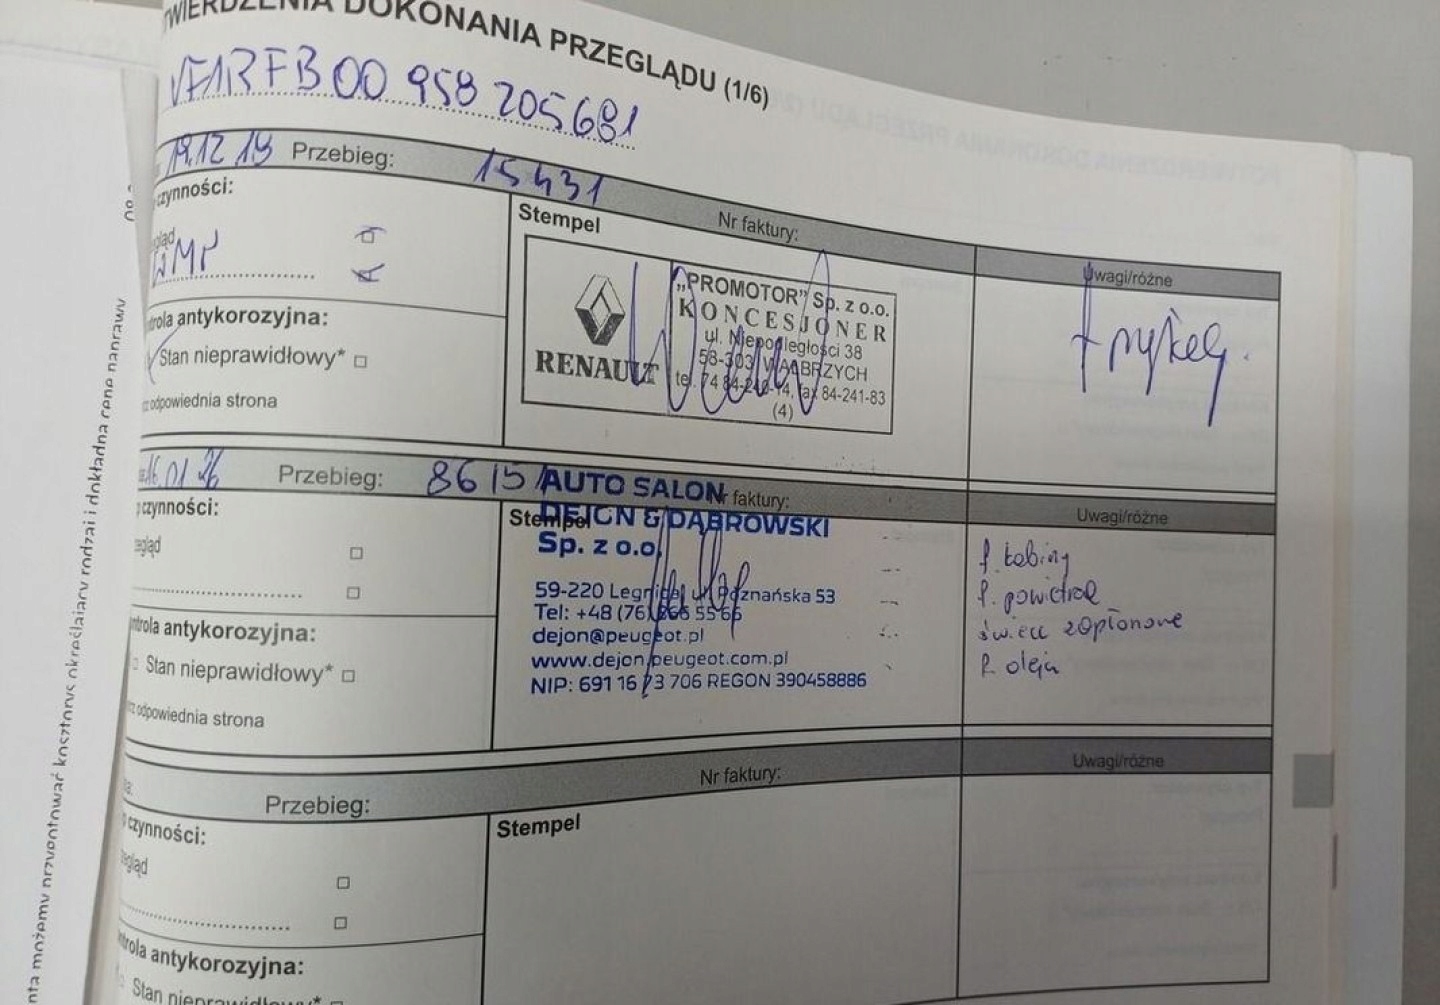 DOKONANIA PRZEGLĄDU (1/6)
VF1RFB00 958 205681
19.12.19 Przebieg: 15431
Nr faktury:
Uwagi/różne
czynności:
Stempel
WMP
„PROMOTOR” Sp. z o.o.
KONCESJONER
ul. Niepodległości 38
58-303 WAŁBRZYCH
tel. 74 84-240-14, fax 84-241-83
(4)
RENAULT
antykorozyjna:
Stan nieprawidłowy*
odpowiednia strona
16.01.26 Przebieg: 8615
faktury:
Uwagi/różne
czynności:
Stempel
AUTO SALON
DEJON & DĄBROWSKI
Sp. z o.o.
59-220 Legnica, ul. Poznańska 53
Tel: +48 (76) 866 55 66
dejon@peugeot.pl
www.dejon.peugeot.com.pl
NIP: 691 16 73 706 REGON 390458886
f. kabiny
f. powietrza
świece zapłonowe
antykorozyjna:
Stan nieprawidłowy*
odpowiednia strona
Przebieg:
Nr faktury:
Uwagi/różne
czynności:
Stempel
antykorozyjna:
Stan nieprawidłowy*
możemy przygotować kosztorys określający rodzaj i dokładną cenę naprawy